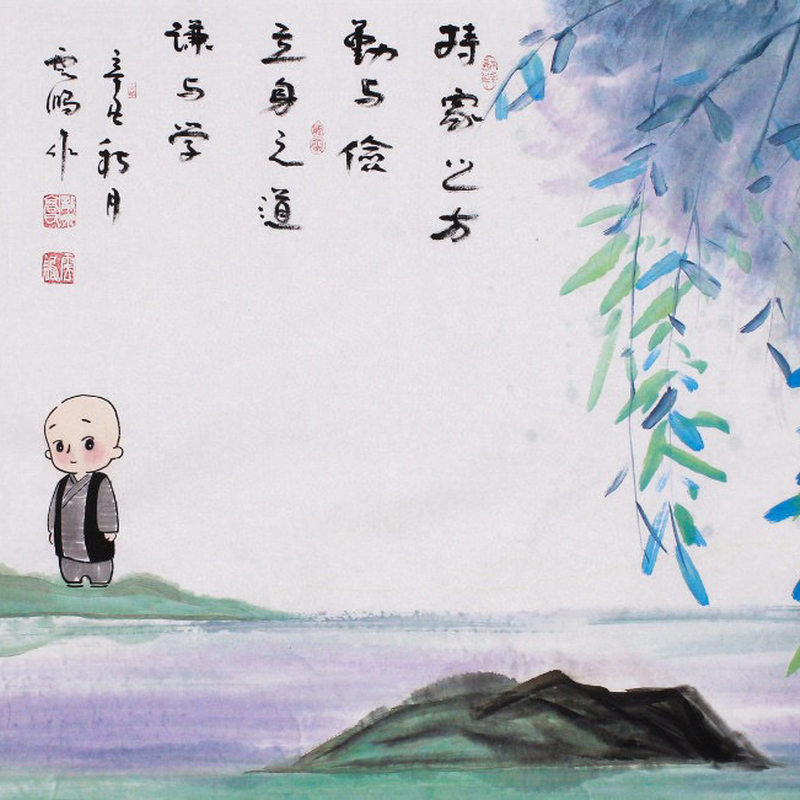 持家之方
勤与儉
立身之道
谦与学
辛丑秋月
作